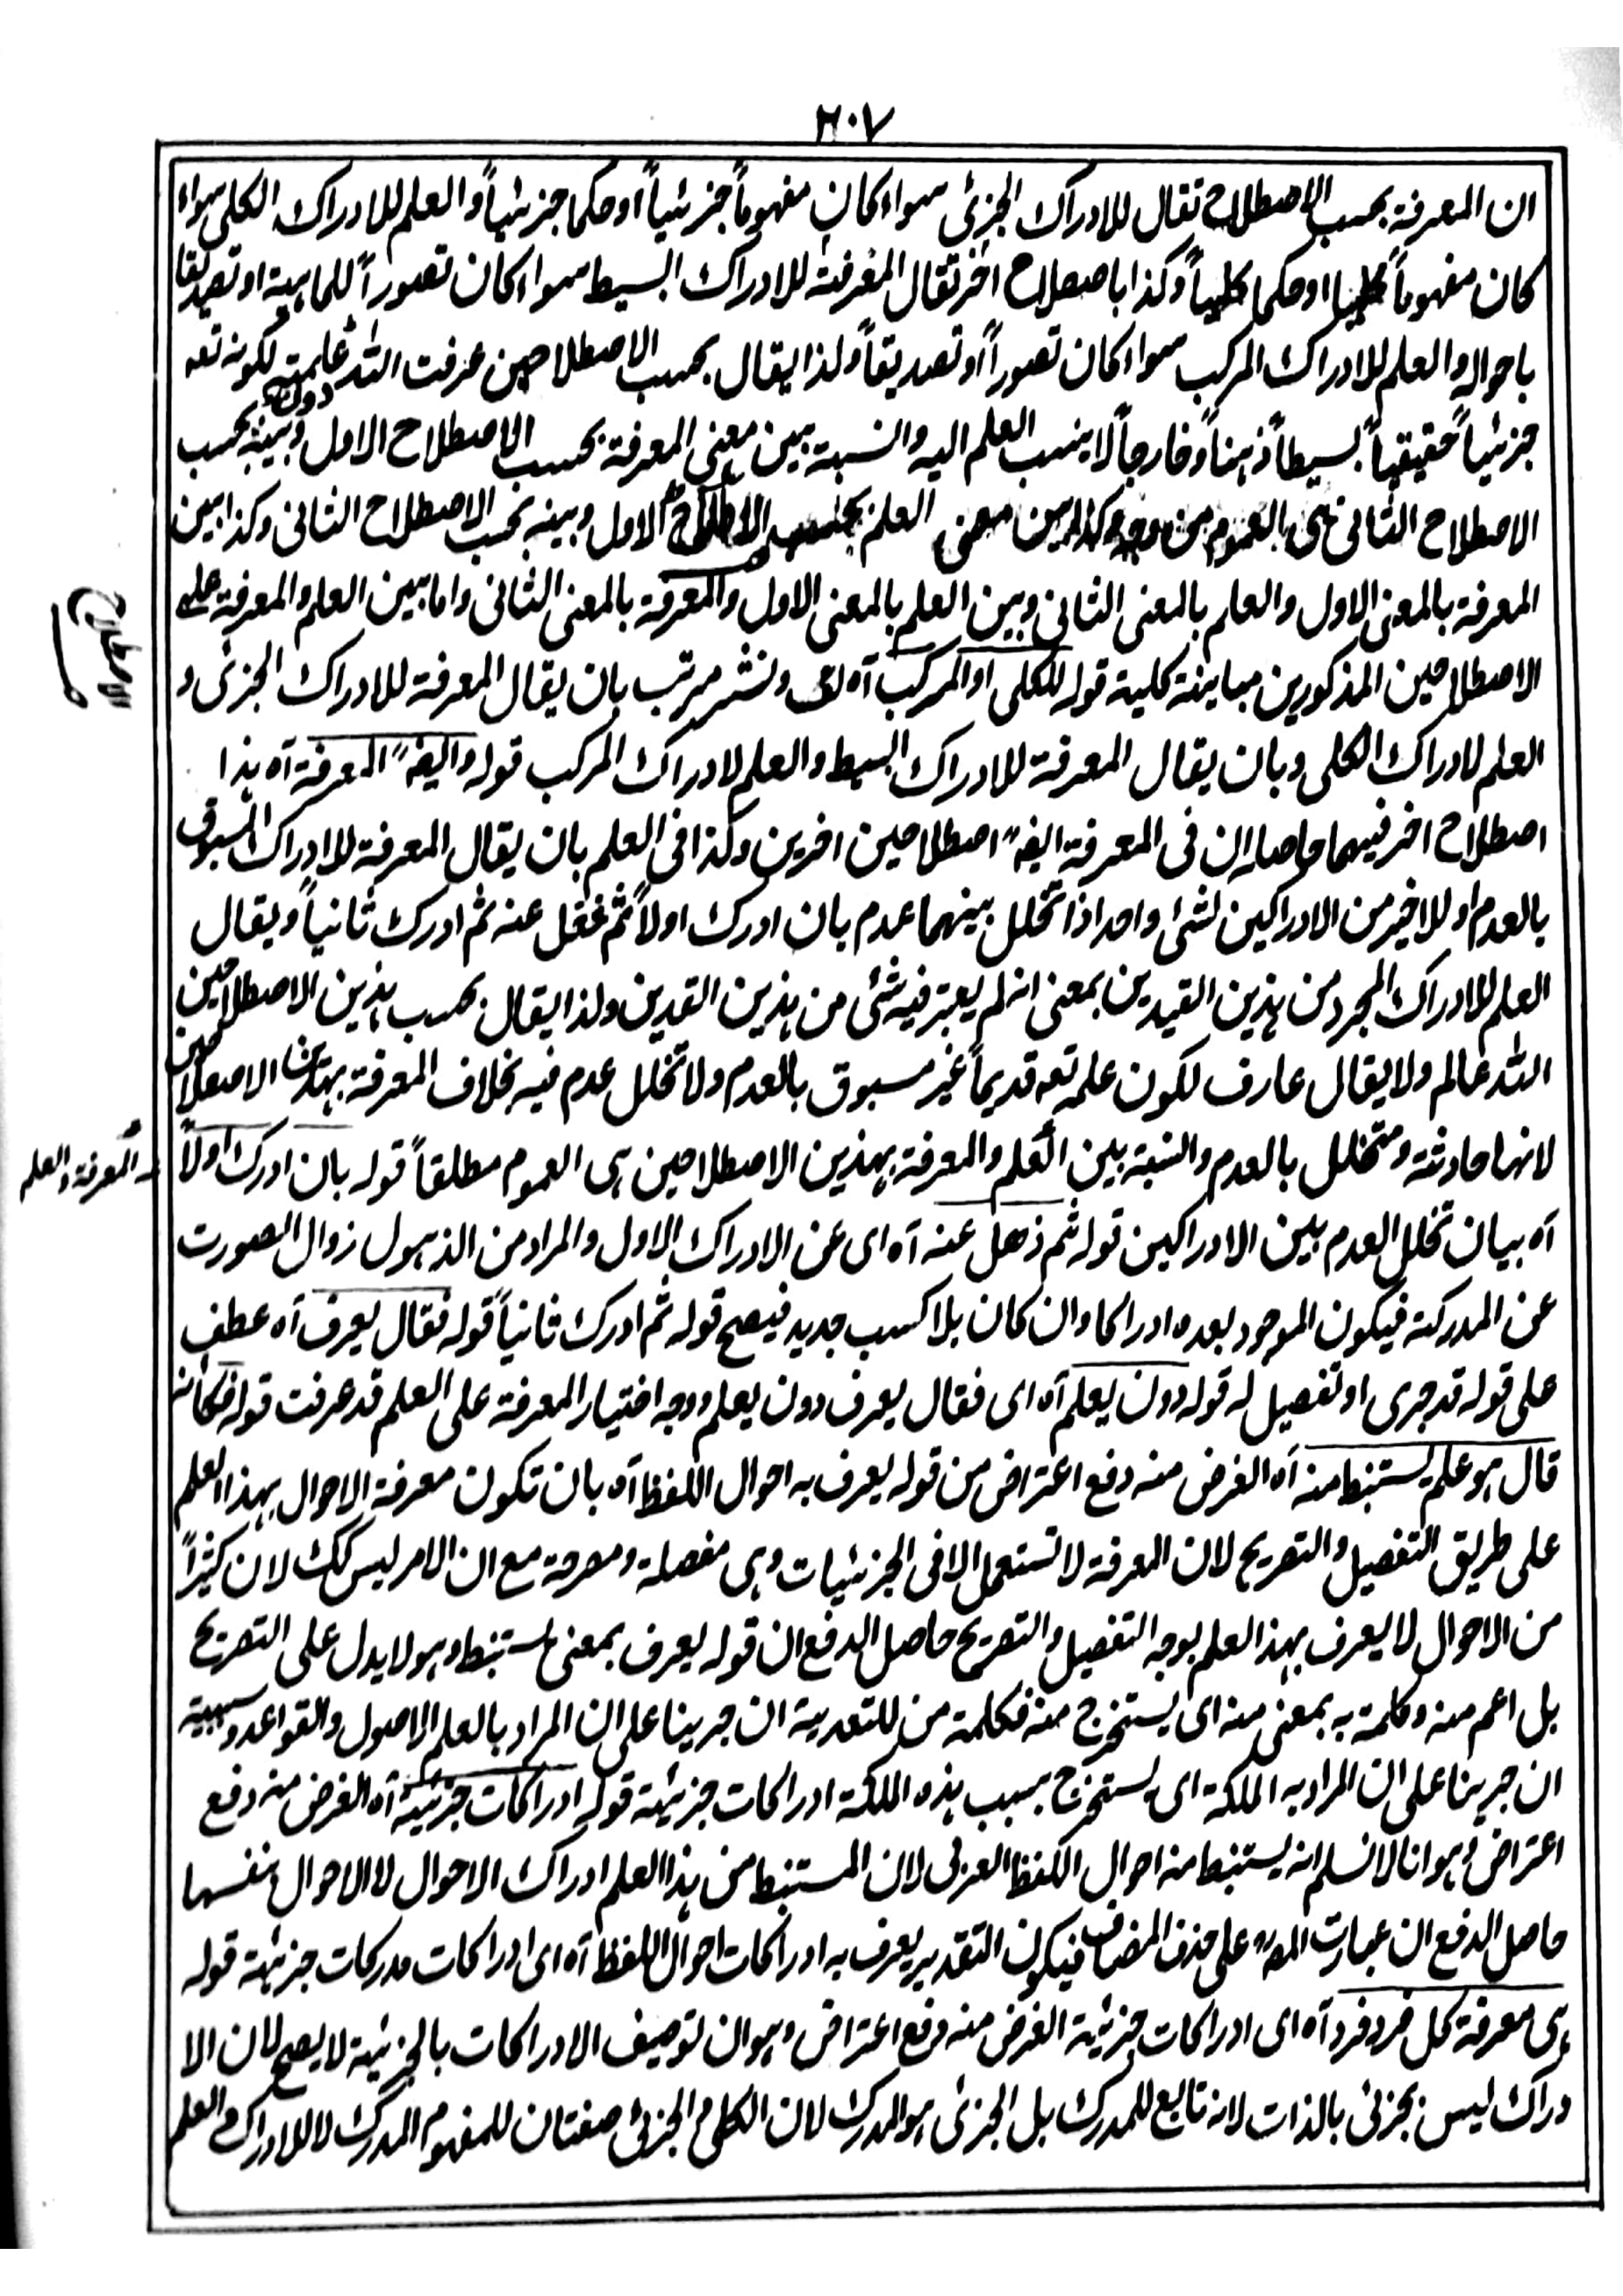 ٢٠٧
ان المعرفة بحسب الاصطلاح تقال للادراك الجزئى سواء كان مفهوماً جزئياً او حكما جزئياً والعلم للادراك الكلى سواء
كان مفهوماً كلياً او حكما كلياً وكذا باصطلاح اخر تقال المعرفة للادراك البسيط سواء كان تصوراً للماهية او تصديقا
باحواله والعلم للادراك المركب سواء كان تصوراً او تصديقاً ولذا يقال بحسب الاصطلاحين عرفت الله دون علمته لكونه تعه
جزئياً حقيقياً بسيطاً ذهناً وخارجاً لا ينسب العلم اليه والنسبة بين معنى المعرفة بحسب الاصطلاح الاول وبينه بحسب
الاصطلاح الثانى هى العموم من وجه وكذا بين معنى العلم بحسب الاصطلاح الاول وبينه بحسب الاصطلاح الثانى وكذا بين
المعرفة بالمعنى الاول والعلم بالمعنى الثانى وبين العلم بالمعنى الاول والمعرفة بالمعنى الثانى واما بين العلم والمعرفة على
الاصطلاحين المذكورين مباينة كلية قوله للكلى او المركب آه لف ونشر مرتب بان يقال المعرفة للادراك الجزئى و
العلم لادراك الكلى وبان يقال المعرفة للادراك البسيط والعلم لادراك المركب قوله وايضه المعرفة آه هذا
اصطلاح اخر فيهما حاصله ان فى المعرفة ايضه اصطلاحين اخرين وكذا فى العلم بان يقال المعرفة للادراك المسبوق
بالعدم او للاخير من الادراكين لشئ واحد اذا تخلل بينهما عدم بان ادرك اولاً ثم غفل عنه ثم ادرك ثانياً ويقال
العلم للادراك المجرد من هذين القيدين بمعنى انه لم يعتبر فيه شئ من هذين القدين ولذا يقال بحسب هذين الاصطلاحين
الله عالم ولا يقال عارف لكون علمه تعه قديماً غير مسبوق بالعدم ولا تخلل عدم فيه بخلاف المعرفة بهذين الاصطلاحين
لانها حادثة ومتخلل بالعدم والنسبة بين العلم والمعرفة بهذين الاصطلاحين هى العموم مطلقاً قوله بان ادرك اولاً
آه بيان تخلل العدم بين الادراكين قوله ثم ذهل عنه آه اى عن الادراك الاول والمراد من الذهول زوال الصورت
عن المدركة فيكون الموجود بعده ادراكا وان كان بلا كسب جديد فيصح قوله ثم ادرك ثانياً قوله فقال يعرف آه عطف
على قوله قد جرى او تفصيل له قوله دون يعلم آه اى فقال يعرف دون يعلم ووجه اختيار المعرفة على العلم قد عرفت قوله فكانه
قال هو علم يستنبط منه آه الغرض منه دفع اعتراض من قوله يعرف به احوال اللفظ آه بان تكون معرفة الاحوال بهذا العلم
على طريق التفصيل والتصريح لان المعرفة لا تستعمل الا فى الجزئيات وهى مفصلة ومصرحة مع ان الامر ليس كك لان كثيراً
من الاحوال لا يعرف بهذا العلم بوجه التفصيل والتصريح حاصل الدفع ان قوله يعرف بمعنى يستنبط وهو لا يدل على التصريح
بل اعم منه وكلمة به بمعنى منه اى يستخرج منه فكلمة من للتعدية ان جرينا على ان المراد بالعلم الاصول والقواعد وسببية
ان جرينا على ان المراد به الملكة اى يستخرج بسبب هذه الملكة ادراكات جزئية قوله ادراكات جزئية آه الغرض منه دفع
اعتراض وهو انا لا نسلم انه يستنبط منه احوال اللفظ العربى لان المستنبط من هذا العلم ادراك الاحوال لا الاحوال بنفسها
حاصل الدفع ان عبارت المصـ على حذف المضاف فيكون التقدير يعرف به ادراكات احوال اللفظ آه اى ادراكات مدركات جزئية قوله
هى معرفة كل فرد فرد آه اى ادراكات جزئية الغرض منه دفع اعتراض وهو ان توصيف الادراكات بالجزئية لا يصح لان الا
دراك ليس بجزئى بالذات لانه تابع للمدرك بل الجزئى هو المدرك لان الكلى والجزئى صفتان للمفهوم المدرك لا للادراك والعلم
الاصطلاح
المعرفة والعلم